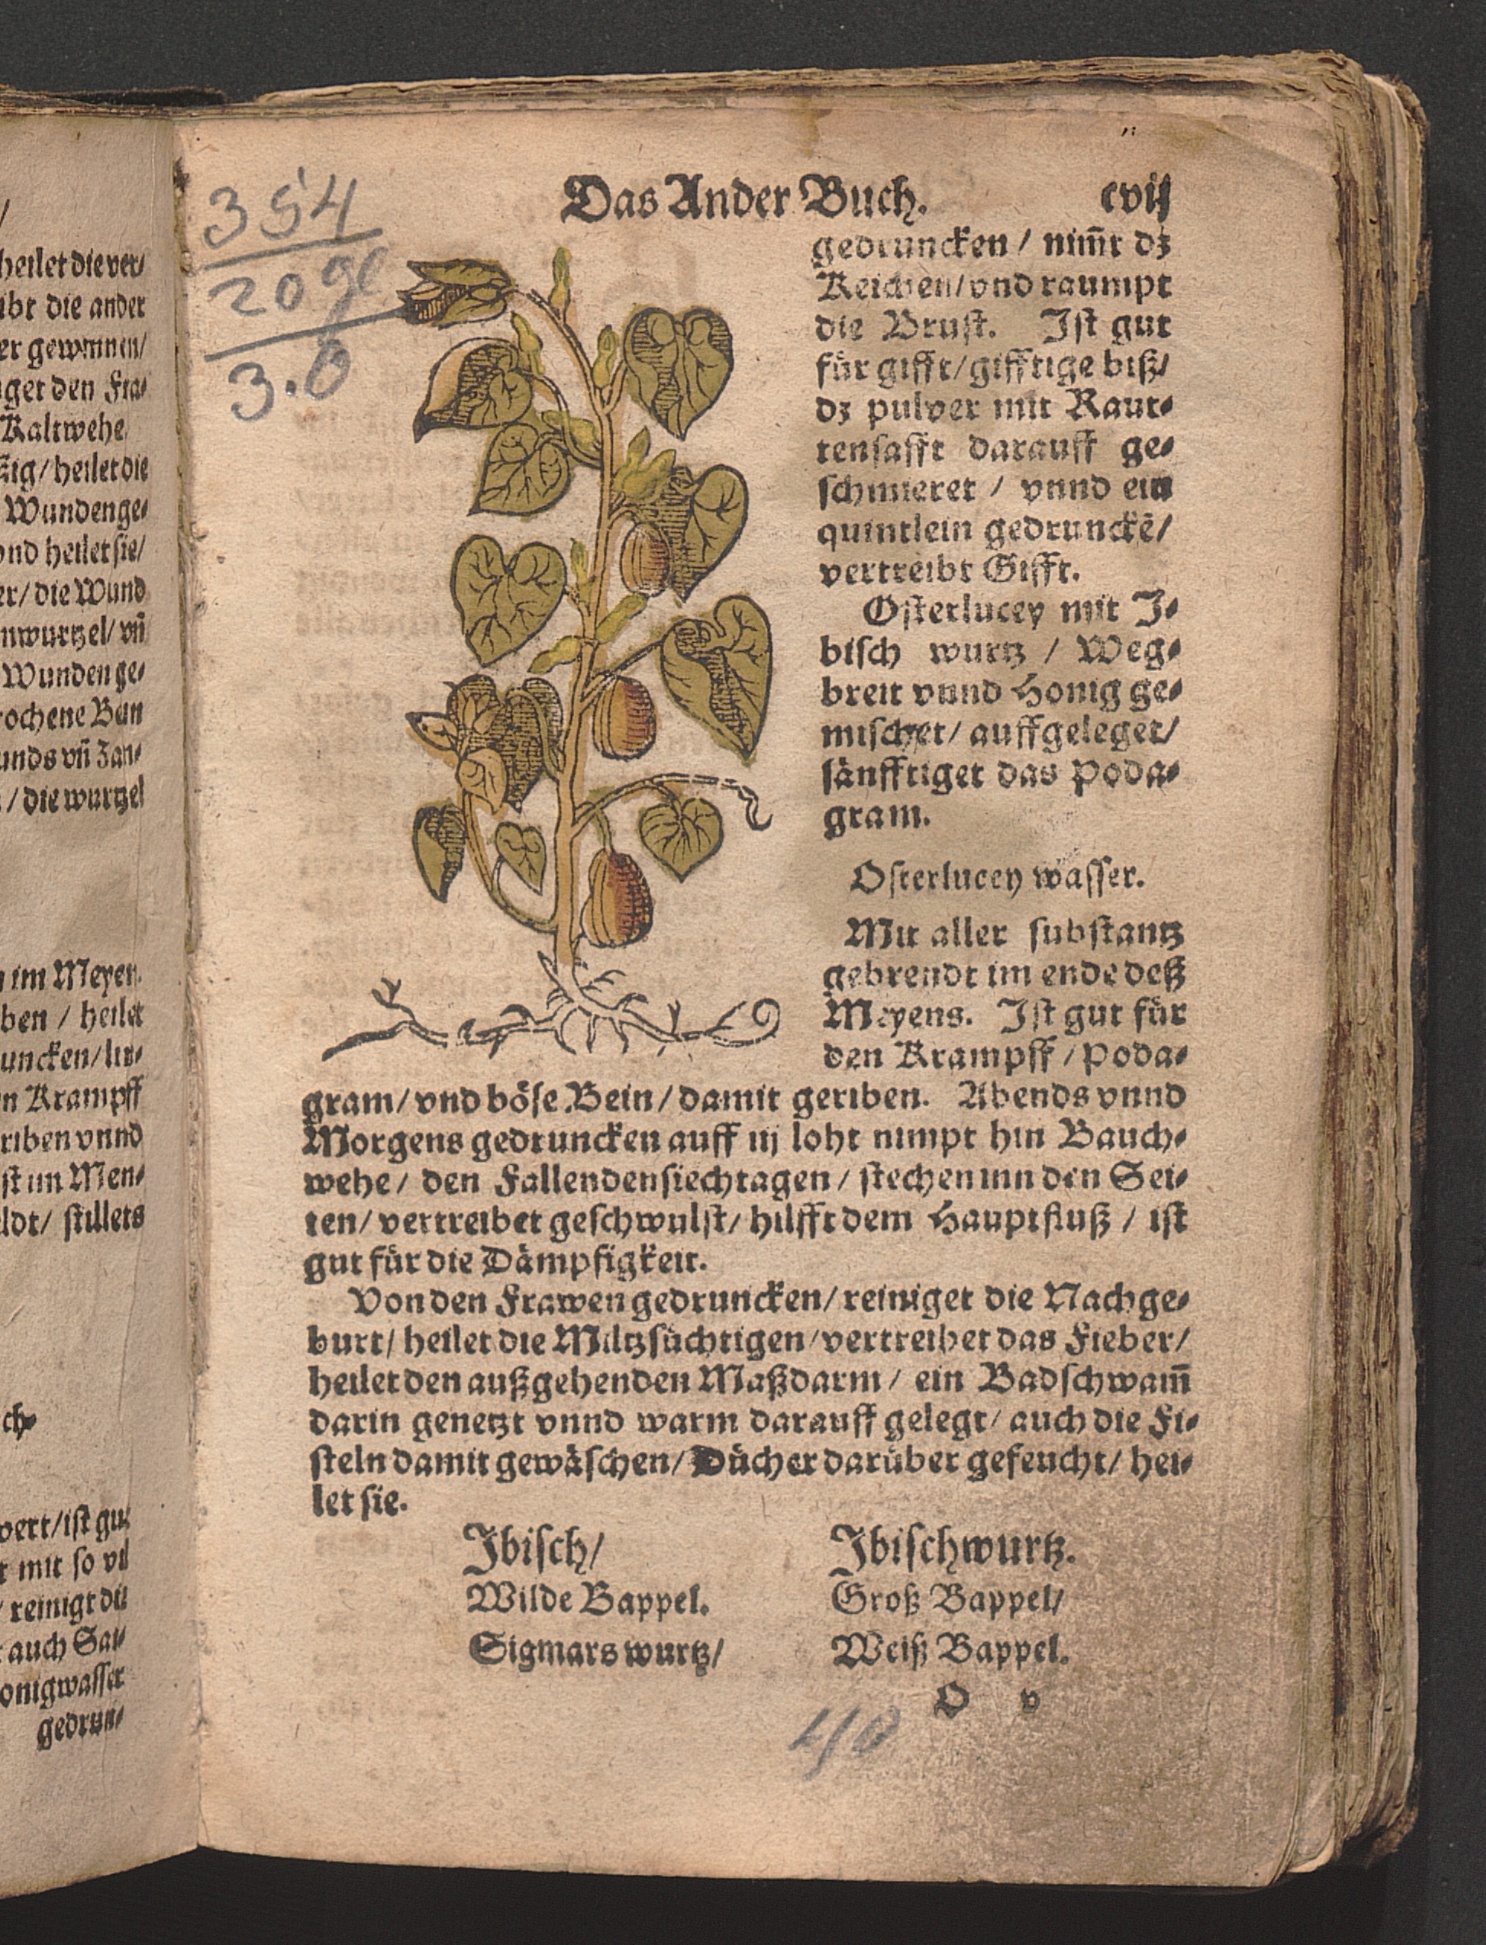 heilet die ver/
ibt die ander
er gewinnen/
get den Fra⸗
Kaltwehe
tig/ heilet die
Wunden ge⸗
vnd heilet sie/
er/ die Wund
nwurtzel/ vñ
Wunden ge⸗
rochene Bein
unds vñ Zan⸗
/ die wurtzel
im Meyen
ben / heilet
uncken/ lin⸗
n Krampff
riben vnnd
st im Men⸗
ldt/ stillets
ch⸗
wert/ ist gut
r mit so vil
/ reinigt die
auch Sai⸗
onigwasser
gedrun⸗
354
20 ge
3.6
Das Ander Buch. cvij
gedruncken / nim̃t dz
Keichen/ vnd raumpt
die Brust. Ist gut
für gifft/ gifftige biß/
dz pulver mit Raut⸗
tensafft darauff ge⸗
schmieret / vnnd ein
quintlein gedrunckẽ/
vertreibt Gifft.
Osterlucey mit J⸗
bisch wurtz / Weg⸗
breit vnnd Honig ge⸗
mischet/ auffgeleget/
sänfftiget das Poda⸗
gram.
Osterlucey wasser.
Mit aller substantz
gebrendt im ende deß
Meyens. Ist gut für
den Krampff / Poda⸗
gram/ vnd böse Bein / damit geriben. Abends vnnd
Morgens gedruncken auff iij loht nimpt hin Bauch⸗
wehe / den Fallendensiechtagen / stechen inn den Sei⸗
ten/ vertreibet geschwulst/ hilfft dem Hauptfluß / ist
gut für die Dämpfigkeit.
Von den Frawen gedruncken/ reiniget die Nachge⸗
burt/ heilet die Miltzsüchtigen/ vertreibet das Fieber/
heilet den außgehenden Maßdarm / ein Badschwam̃
darin genetzt vnnd warm darauff gelegt/ auch die Fi⸗
steln damit gewäschen/ Dücher darüber gefeucht/ hei⸗
let sie.
Jbisch/ Jbischwurtz.
Wilde Bappel. Groß Bappel/
Sigmars wurtz/ Weiß Bappel.
O v